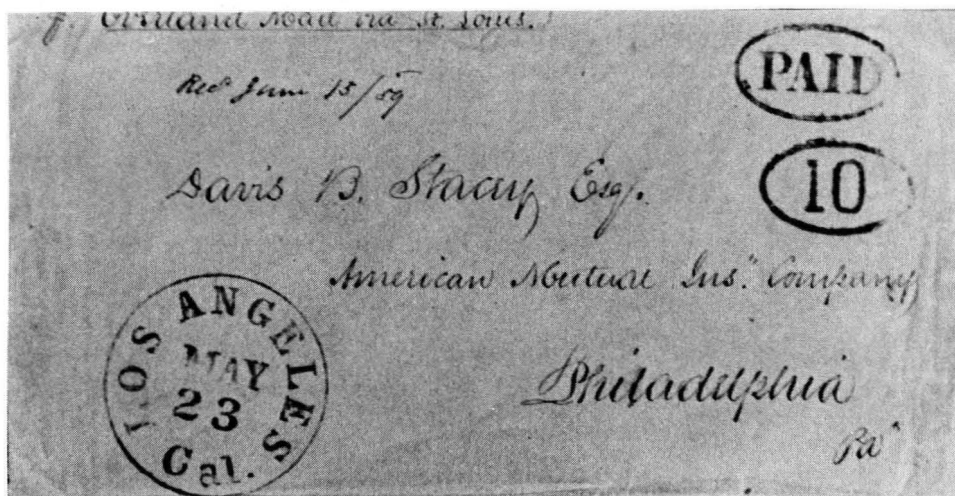 Overland Mail via St. Louis.
PAID
Recd June 15/59
10
Davis B. Stacey Esqr.
American Mutual Ins. Company
Philadelphia
Pa
LOS ANGELES
MAY
23
Cal.